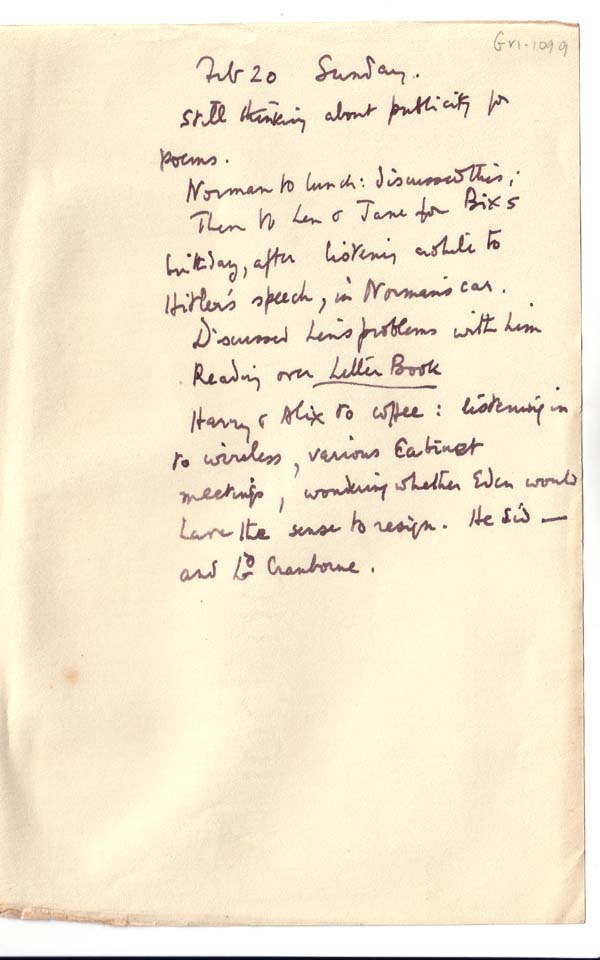 Gr1-1099
Feb 20 Sunday.
Still thinking about publicity for
poems.
Norman to lunch: discussed this;
Then to Len & Jane for Bix's
birthday, after listening awhile to
Hitler's speech, in Norman's car.
Discussed Len's problems with him
Reading over Letter Book
Harry & Alix to coffee: listening in
to wireless, various Cabinet
meetings, wondering whether Eden would
have the sense to resign. He did —
and Ld Cranborne.